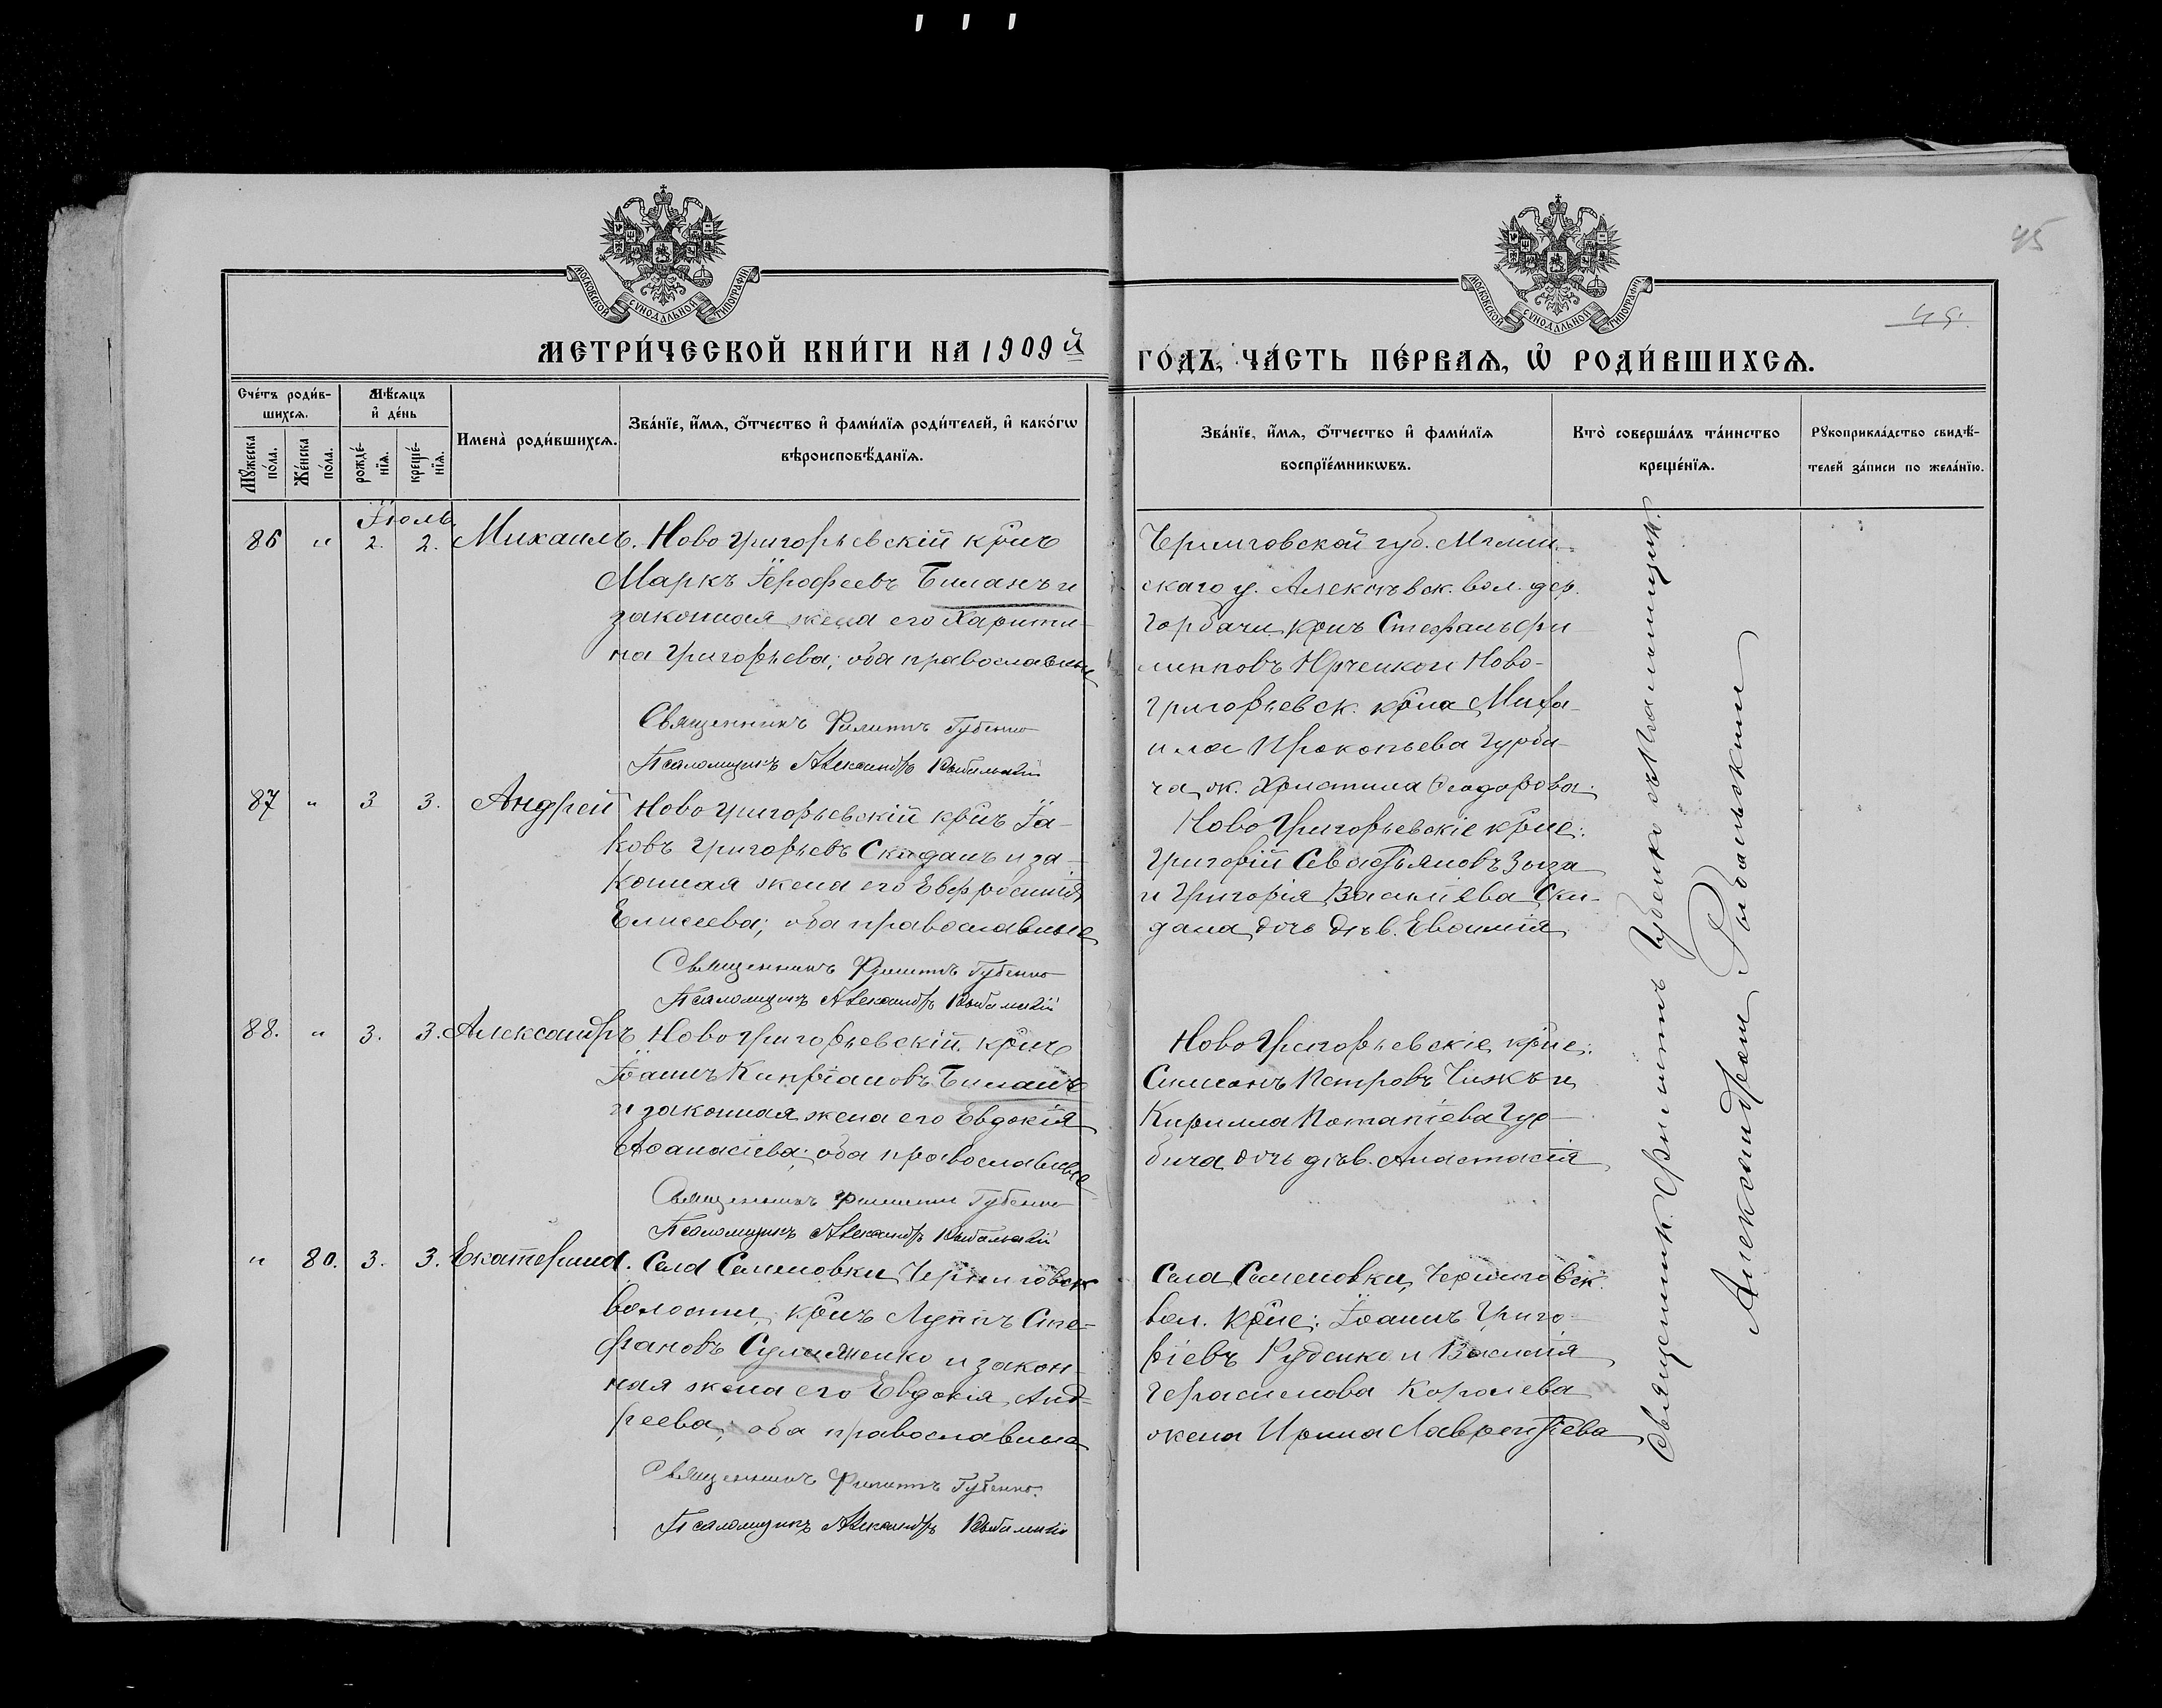 45
45.
МОСКОВСКОЙ СѴНОДАЛЬНОЙ ТИПОГРАФІИ
МОСКОВСКОЙ СѴНОДАЛЬНОЙ ТИПОГРАФІИ
МЕТРИ́ЧЕСКОЙ КНИ́ГИ НА 1909й
ГО́ДЪ, ЧА́СТЬ ПЕ́РВАѦ, Ѡ҆ РОДИ́ВШИХСѦ.
Сче́тъ роди́в-
шихсѧ.
Мꙋжеска по́ла.
Же́нска по́ла.
Мѣ́сѧцъ
и҆ де́нь
рожде́-
нїѧ.
креще́-
нїѧ.
Имена̀ роди́вшихсѧ.
Зва́нїе, и҆́мѧ, ѻ҆́тчество и҆ фами́лїѧ роди́телей, и҆ како́гѡ
вѣроисповѣ́данїѧ.
Зва́нїе, и҆́мѧ, ѻ҆́тчество и҆ фами́лїѧ
воспрїе́мникѡвъ.
Кто̀ соверша́лъ та́инство
креще́нїѧ.
Рꙋкоприкла́дство свидѣ́-
телей за́писи по жела́нїю.
Іюль.
86 " 2. 2. Михаилъ. Ново Григорьевскій крнъ
Маркъ Іерофеевъ Биланъ и
законная жена его Харити-
на Григорьева; оба православные
Священникъ Филиппъ Губенко
Псаломщикъ Александръ Рыбальскій
Черниговской губ. Мглин-
скаго у. Алексѣевск. вол. дер.
Горбачи крнъ Стефанъ Фи
липповъ Юрченко и Ново-
григорьевск. крна Миха-
ила Прокопьева Гурби-
ча ж. Христина Ѳеодорова.
87 " 3 3. Андрей Ново Григорьевскій крнъ Іа-
ковъ Григорьевъ Скиданъ и за-
конная жена его Евфросинія
Елисеева; оба православные
Священникъ Филиппъ Губенко
Псаломщикъ Александръ Рыбальскій
Ново Григорьевскіе крне:
Григорій Севастьяновъ Зызa
и Григорія Васильева Ски-
дана дочь дѣв. Евѳимія
88. " 3. 3. Александръ Ново Григорьевскій крнъ
Іоаннъ Кипріановъ Биланъ
и законная жена его Евдокія
Аѳанасіева; оба православные
Священникъ Филиппъ Губенко
Псаломщикъ Александръ Рыбальскій
Ново Григорьевскіе крне:
Симеонъ Петровъ Чижъ и
Кирилла Потапіева Гур-
бича дочь дѣв. Анастасія
" 80. 3. 3. Екатерина. Села Семеновки Черниговск
волости крнъ Луппъ Сте-
фановъ Сулименко и закон-
ная жена его Евдокія Анд-
реева; оба православные
Священникъ Филиппъ Губенко.
Псаломщикъ Александръ Рыбальскій
Села Семеновки, Черниговск.
вол. крне: Іоаннъ Григо-
ріевъ Руденко и Василія
Герасимова Королева
жена Ирина Лаврентіева
Священник. Филиппъ Губенко съ псаломщик.
Александром Рыбальским